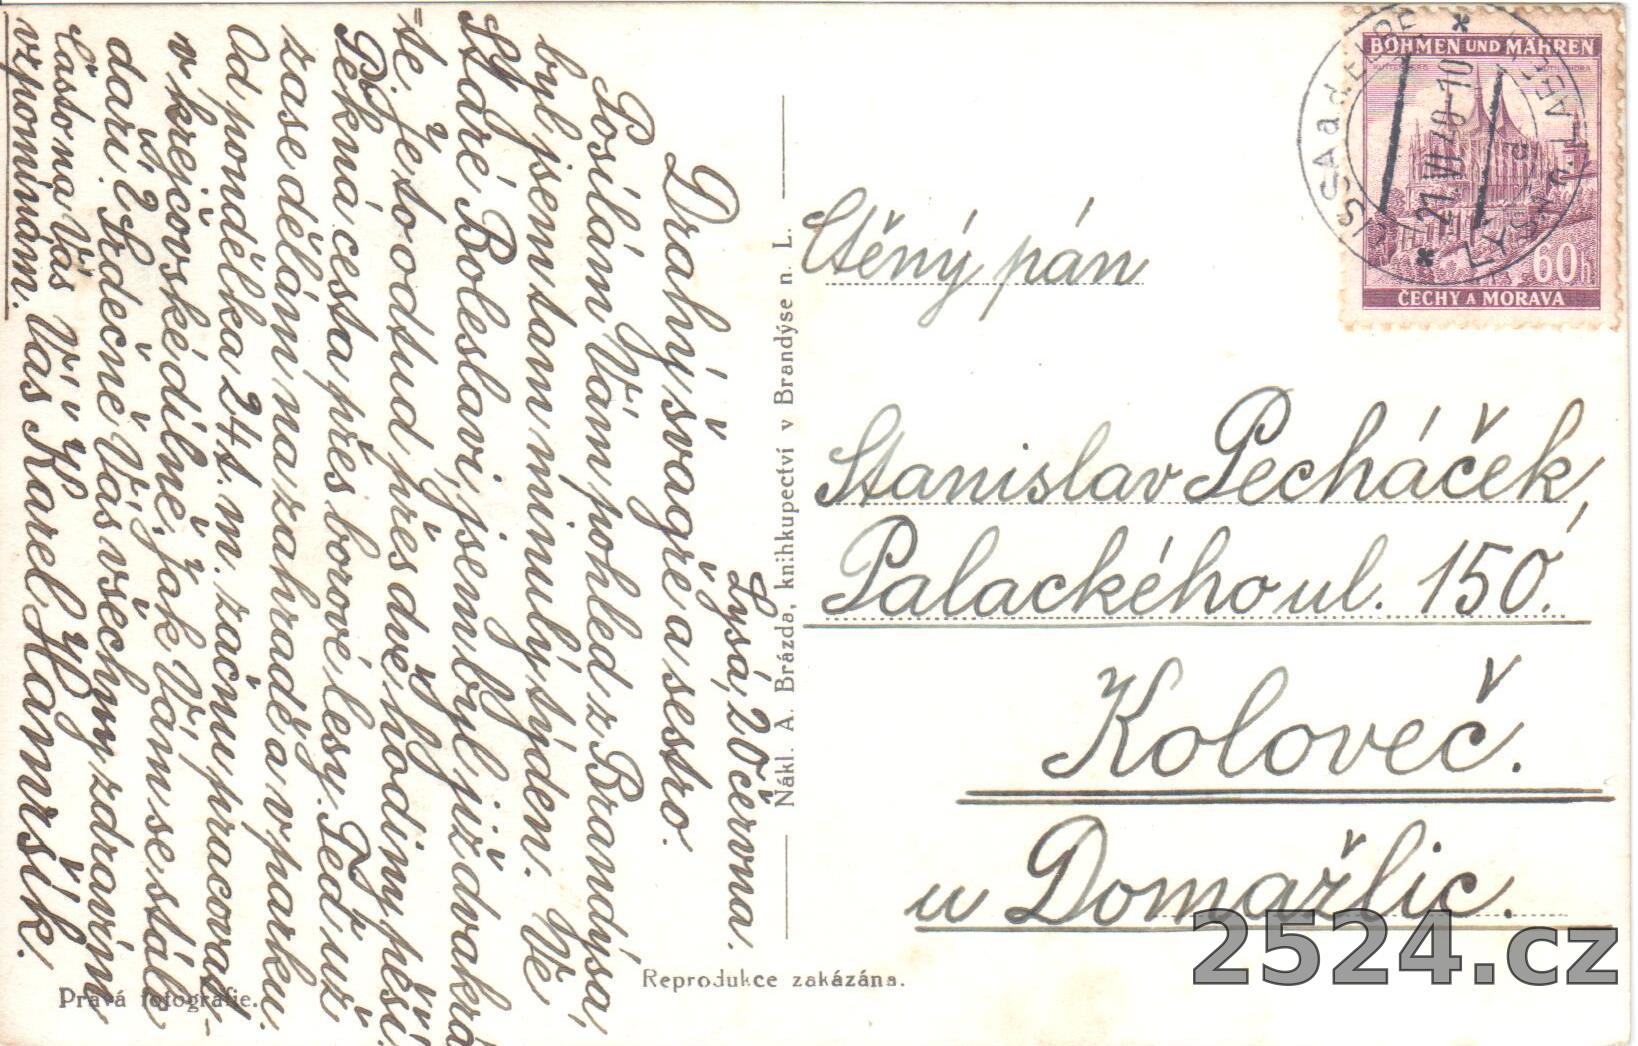 Lysá, 20 června.
Drahý švagře a sestro.
Posílám Vám pohled z Brandýsa,
byl jsem tam minulý týden. Ve
Staré Boleslavi jsem byl již dvakrá
-te, je to odtud přes dvě hodiny pěší.
Pěkná cesta přes borové lesy. Teď už
zase dělám na zahradě a v parku.
Od pondělka 24 t. m. začnu pracovat
v krejčovské dílně. Jak Vám se stále
daří? Srdečně Vás všechny zdravím
často na Vás
vzpomínám. Váš Karel Hamršík.
Pravá fotografie.
Reprodukce zakázána.
Nákl. A. Brázda, knihkupectví v Brandýse n. L.
BÖHMEN UND MÄHREN
60h
ČECHY A MORAVA
LISSA a.d. ELBE
21.VI.40-10
LYSÁ n. LAB.
Ctěný pán
Stanislav Pecháček,
Palackého ul. 150.
Koloveč.
u Domažlic.
2524.cz